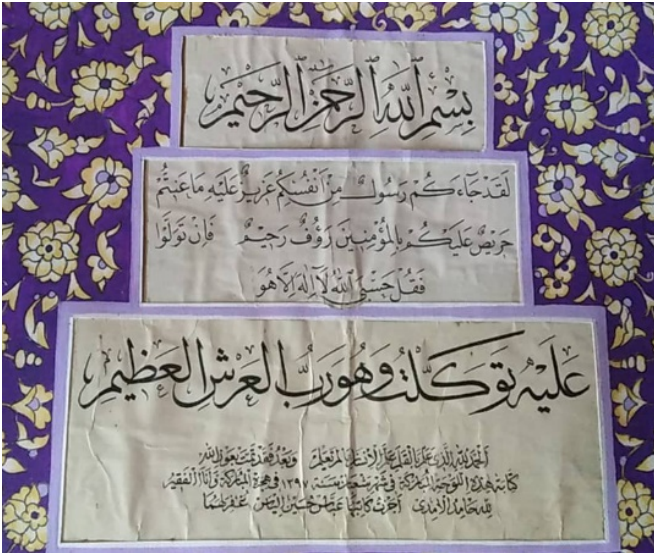 بِسْمِ ٱللَّهِ ٱلرَّحْمَنِ ٱلرَّحِيمِ
لَقَدْ جَاءَكُمْ رَسُولٌ مِنْ أَنْفُسِكُمْ عَزِيزٌ عَلَيْهِ مَا عَنِتُّمْ
حَرِيصٌ عَلَيْكُمْ بِالْمُؤْمِنِينَ رَؤُفٌ رَحِيمٌ فَإِنْ تَوَلَّوْا
فَقُلْ حَسْبِيَ اللهُ لَآ اِلٰهَ اِلَّا هُوَ
عَلَيْهِ تَوَكَّلْتُ وَهُوَ رَبُّ الْعَرْشِ الْعَظِيمِ
الحمد لله الذي علم بالقلم علم الانسان ما لم يعلم وبعد فقد تمت بعون الله
كتابة هذه اللوحة المباركة في شهر شعبان سنة ١٣٩٧ في هجرة المباركة وانا الفقير
لله حامد الآمدي اجزت كاتبها عباس حسين غفر لهما